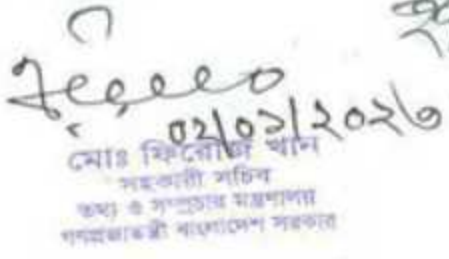 ০২/০১/২০২৩
মোঃ ফিরোজ খান
সহকারী সচিব
তথ্য ও সম্প্রচার মন্ত্রণালয়
গণপ্রজাতন্ত্রী বাংলাদেশ সরকার